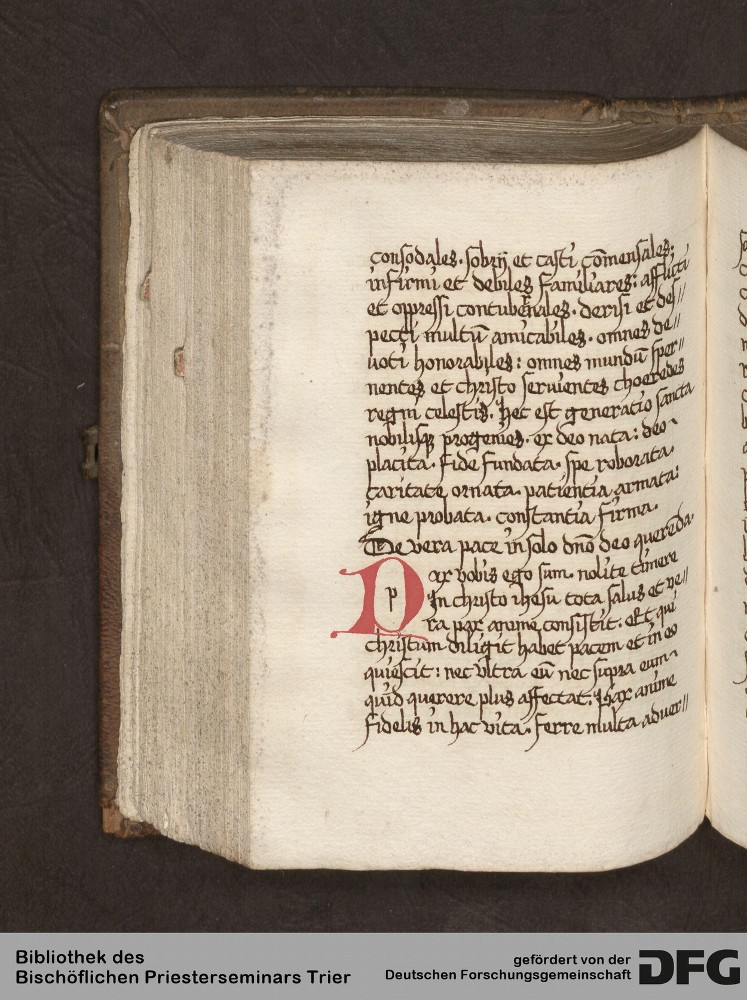 consodales. sobrij et casti cōmensales;
infirmi et debiles familiares: afflicti
et oppressi contub̄nales. derisi et des//
pecti multū amicabiles. omnes de//
uoti honorabiles: omnes mundū sper//
nentes et christo seruientes choeredes
regni celestis. Hec est generatio sancta
nobilisq; progenies. ex deo nata: deo
placita. fide fundata. spe roborata.
caritate ornata. patientia armata:
igne probata. constantia firma.
De vera pace in solo dn̄o deo querēda.
Pax vobis ego sum. nolite timere
In christo ihesu tota salus et ve//
ra pax anime consistit. Et qui
christum diligit habet pacem et in eo
quiescit: nec vltra eū nec supra eum
quid querere plus affectat. Pax anime
fidelis in hac vita. ferre multa aduer//
Bibliothek des
Bischöflichen Priesterseminars Trier
gefördert von der
Deutschen Forschungsgemeinschaft
DFG